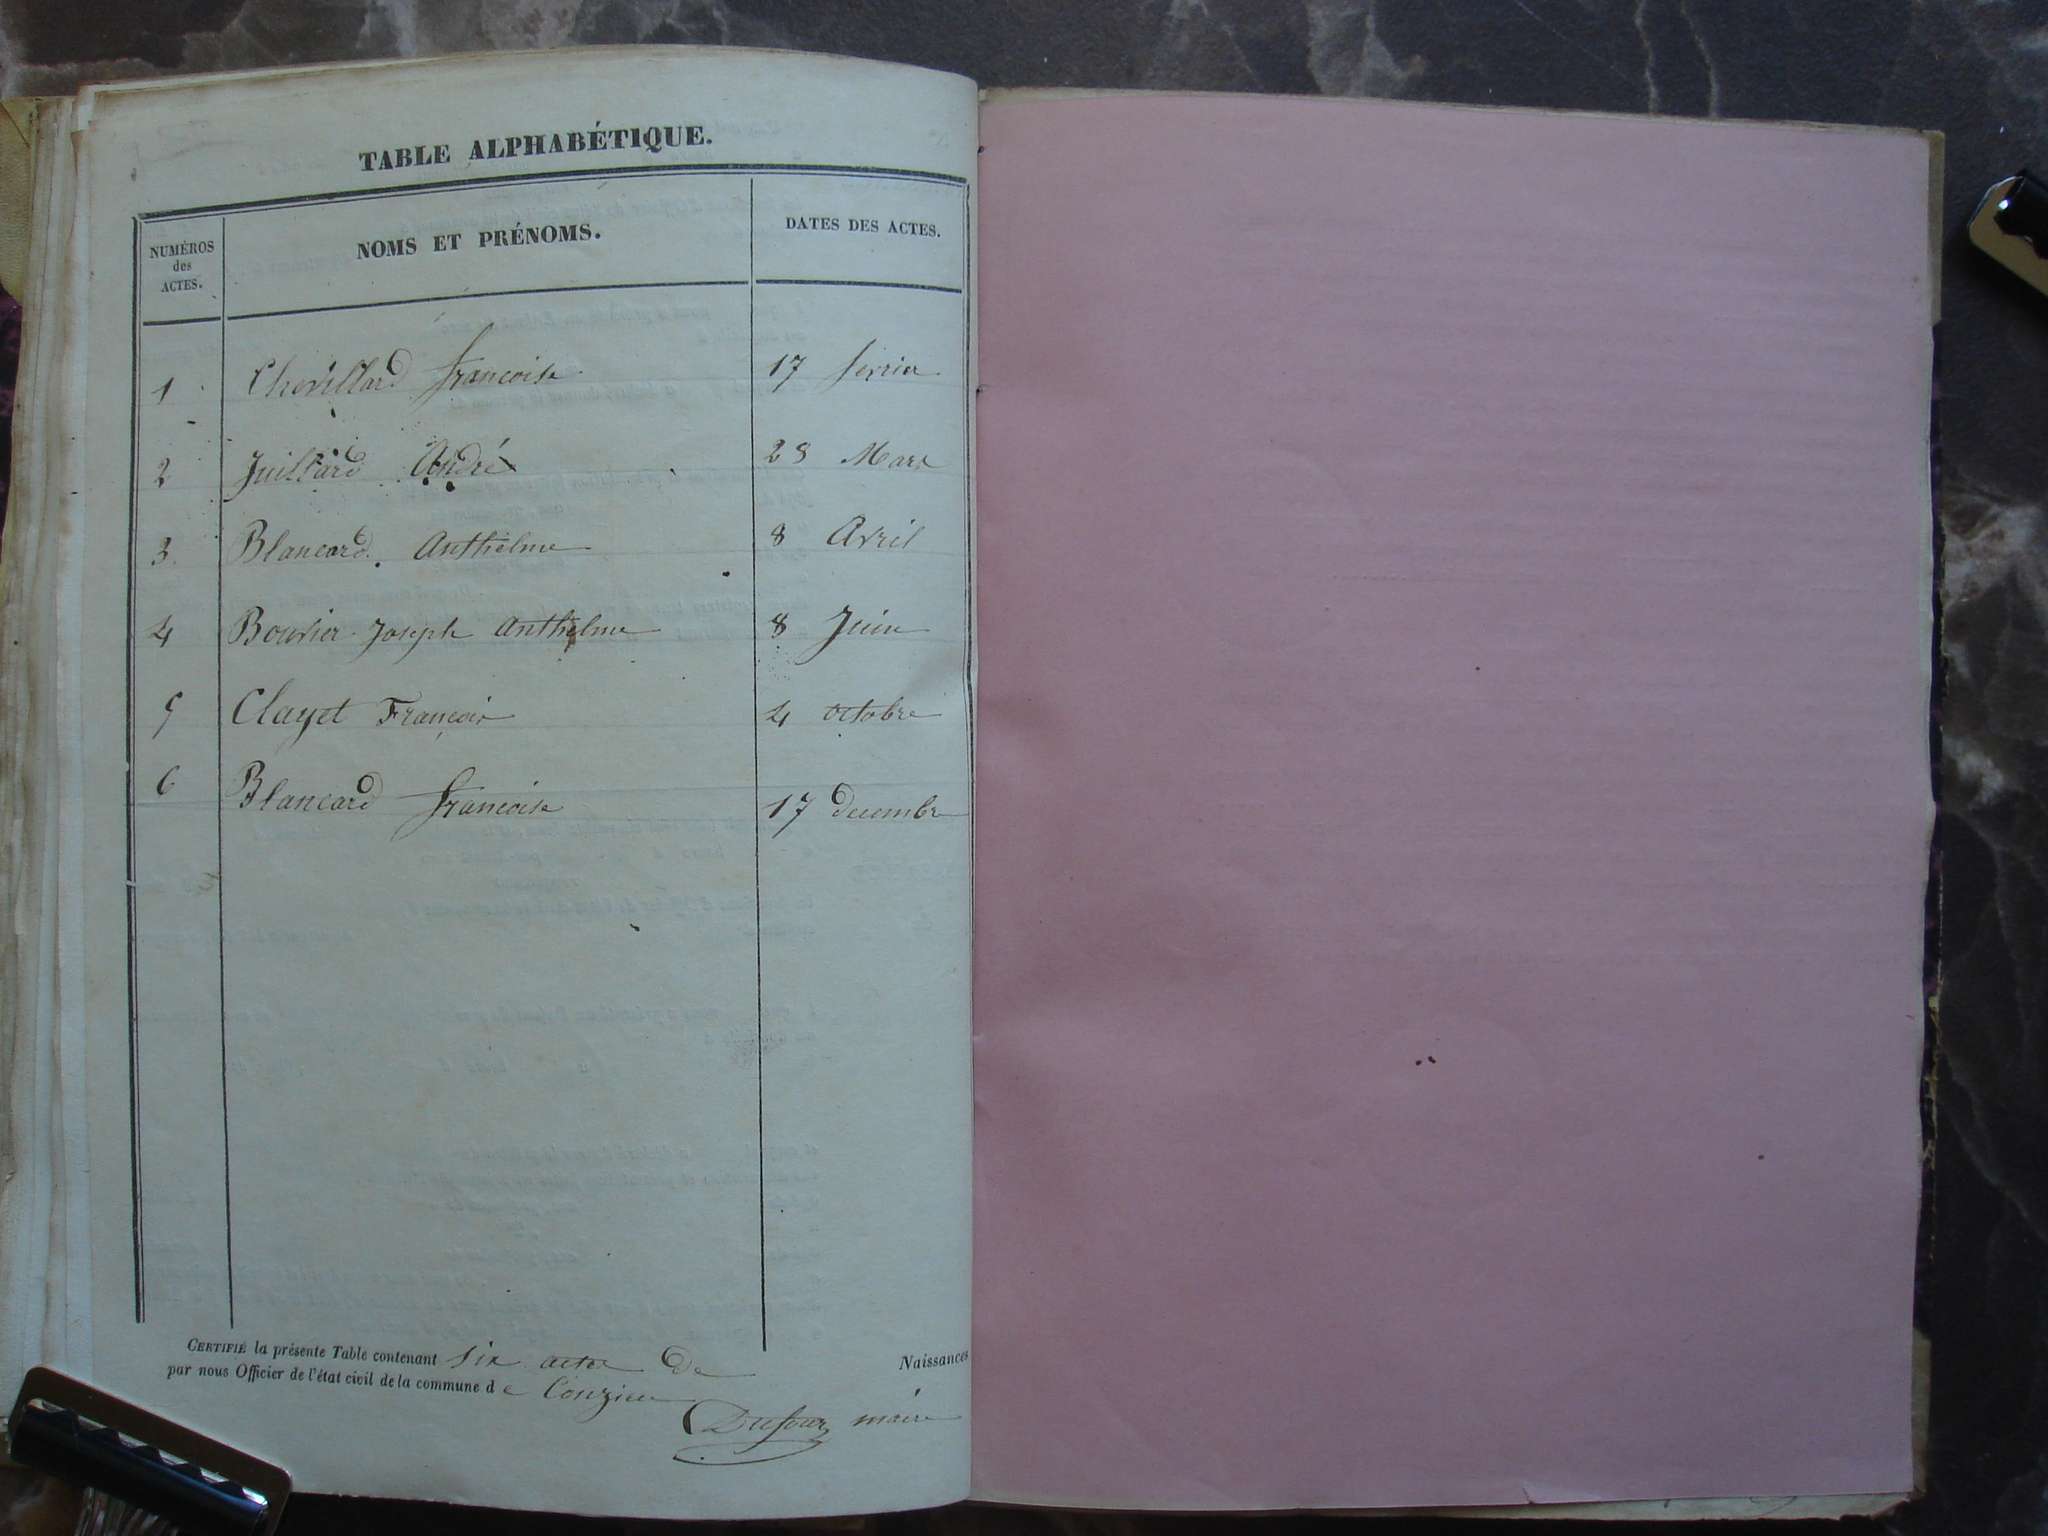 TABLE ALPHABÉTIQUE.
NUMÉROS des ACTES. NOMS ET PRÉNOMS. DATES DES ACTES.
1 Chevillard françoise 17 fevrier
2 Juillard André 28 Mars
3 Blancard Anthelme 8 Avril
4 Bouvier Joseph Anthelme 8 Juin
5 Clayet François 4 octobre
6 Blancard françoise 17 decembre
CERTIFIÉ la présente Table contenant six actes de Naissances
par nous Officier de l'état civil de la commune de Conzieu
Dufour maire